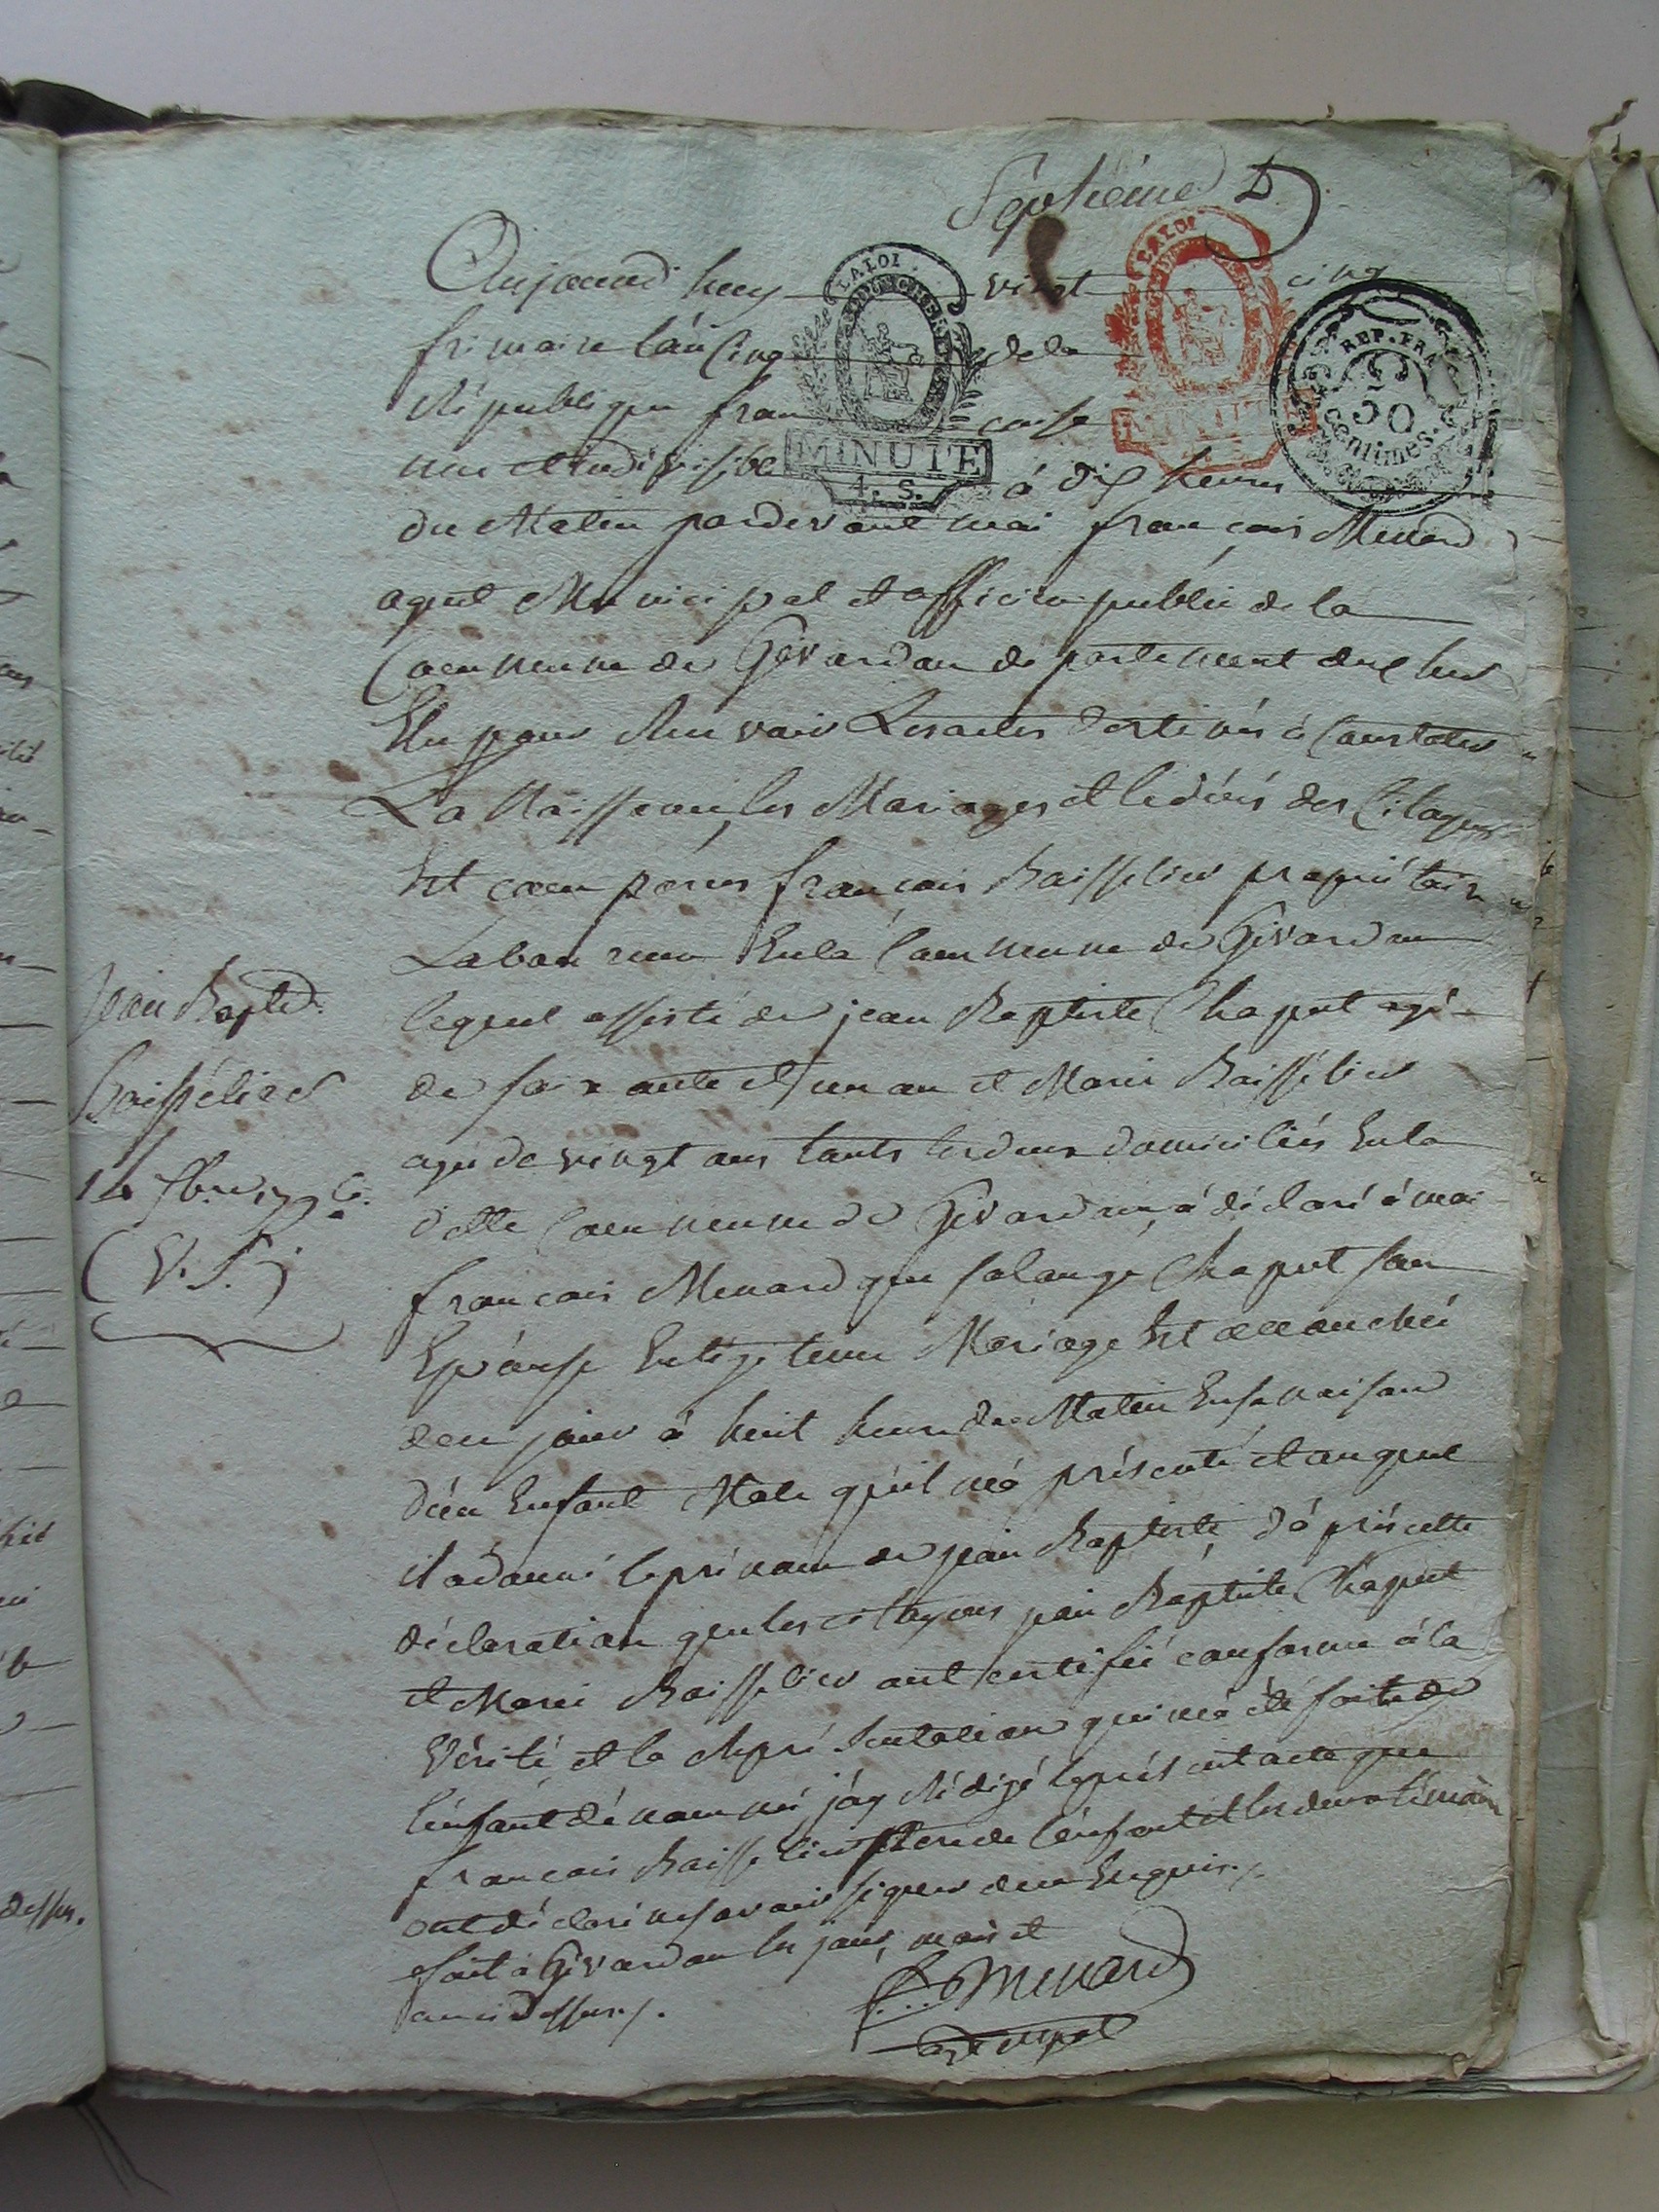 Septième
Aujourd'huy vingt cinq
frimaire l'an cinq de la
République fran caise
une et indivisible à dix heures
du Matin pardevant moi françois Menard
agent Municipal et officier public de la
Commune de Givardon département du Cher
Elu pour Recevoir Les actes destinés à Constater
La Naissance, les Mariages et le décés des Citoyens
Est comparu françois Boisselier propriétaire
Laboureur En la Commune de Givardon
lequel assisté de jean Baptiste Chaput agé
de soixante et un an et Marie Boisselier
agé de vingt ans touts les deux domiciliés En la
dette Commune de Givardon, à déclaré à moi
françois Menard que solange Chaput son
Epouse En légitime Mariage Est accouchée
de ce jour à huit heure du Matin En sa maison
d'un Enfant Male qu'il m'a présenté et auquel
il a donné le prénom de jean Baptiste, d'après cette
déclaration que les citoyens jean Baptiste Chaput
et Marie Boisselier ont certifié conforme à la
Vérité, et la Représentation qui m'a été faite de
l'enfant dénommé, j'ay Rédigé le présent acte que
françois Boisselier Pere de l'enfant et les deux témoin
ont déclaré ne savoir signer de ce Enquis ./.
fait à Givardon les jour, mois et
an ci dessus ./.
f. Menard
agt mpal
Jean Bapte
Boisselier
(V. S.)
LA LOI
MINUTE
4. S.
LA LOI
REP. FRA
50
Centimes.
dessus.